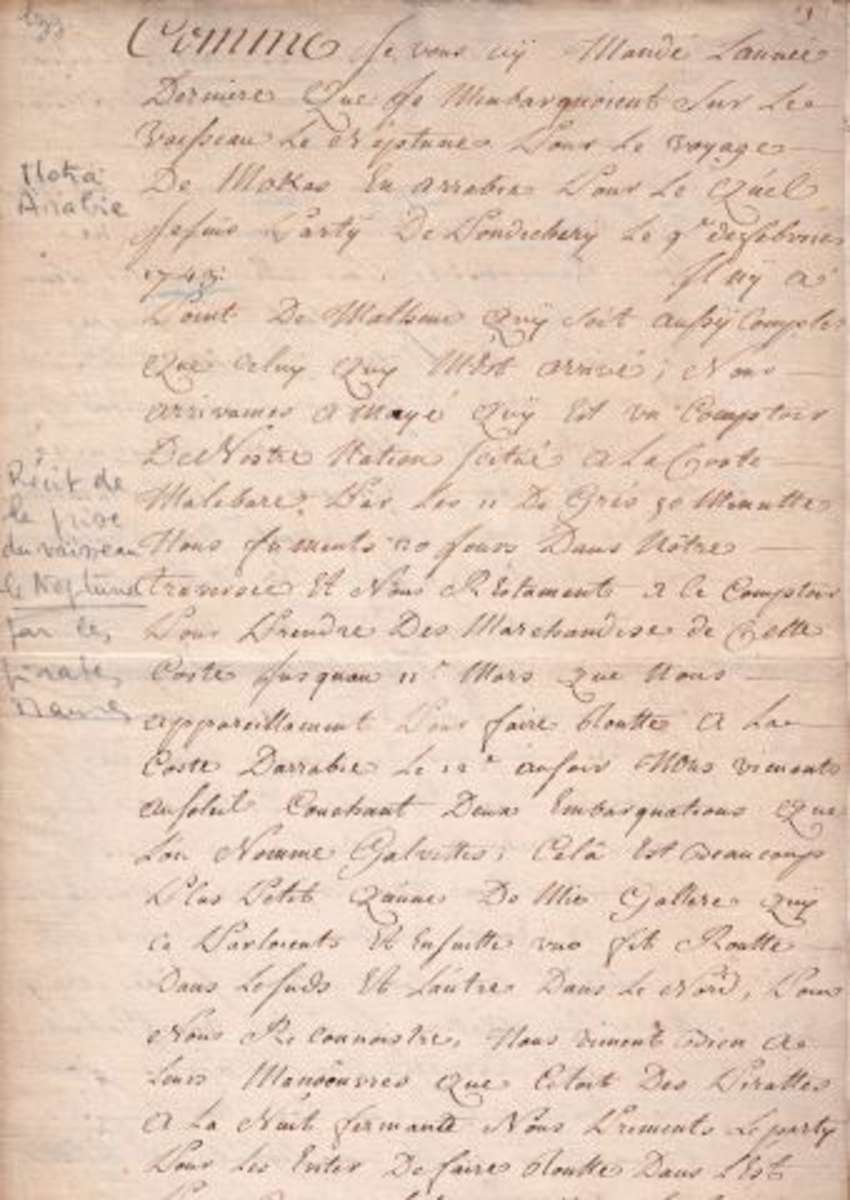 Comme Je vous ay Mandé Lannéé
Derniere Que Je Mimbarquoient Sur Le
Vaisseau Le Neptune Pour Le voyage
De Mokas En arrabie Pour Le Quel
Jesuis Party De Pondichery Le 9.r defebvrier
1743. Il nÿ a
Point De Malheur Quÿ soit aussÿ Complet
Que Celuy Quÿ M'Est arrivé; Nous
arrivames a Mayé Quÿ Est un Comptoir
De Nostre Nation scitué a La Coste
Malebare, Par Les 11 De Grés 50 Minutte
Nous fuments 20 Jours Dans Nôtre
traversée Et Nous Réstaments a ce Comptoir
Pour Prendre Des Marchandise de Cette
Coste Jusquau 11.r Mars Que Nous
appareillament Pour faire Routte a La
Coste Darrabie Le 12.r ausoir Nous viments
ausoleil Couchant Deux Embarquations Que
Lon Nomme Galvettes; Celà Est Beaucoup
Plus Petit Qúune De Mie Gallere Quÿ
ce Parloients Et Ensuitte une fit Routte
Dans Lesuds Et Láutre Dans Le Nord, Pour
Nous Reconnoistre, Nous viment Bien a
Leurs Manoéuvres Que Cétoit Des Pirattes
A La Nuit fermante Nous Priments Le party
Pour Les Eviter De faire Routte Dans L'Est
Moka
Arabie
Récit de
la prise
du vaisseau
le Neptune
par les
pirates